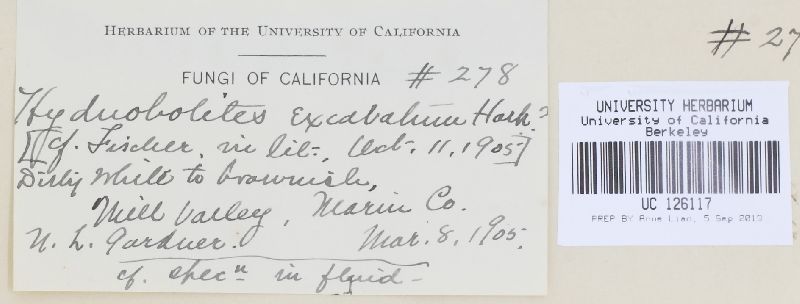 HERBARIUM OF THE UNIVERSITY OF CALIFORNIA
FUNGI OF CALIFORNIA # 278
Hydnobolites excavatum Hark?
[cf. Fischer, in lit., Oct. 11, 1905]
Dirty white to brownish,
Mill Valley, Marin Co.
N. L. Gardner. Mar. 8, 1905.
cf. specn in fluid-
# 27
UNIVERSITY HERBARIUM
University of California
Berkeley
UC 126117
PREP BY Anue Lian, 5 Sep 2013